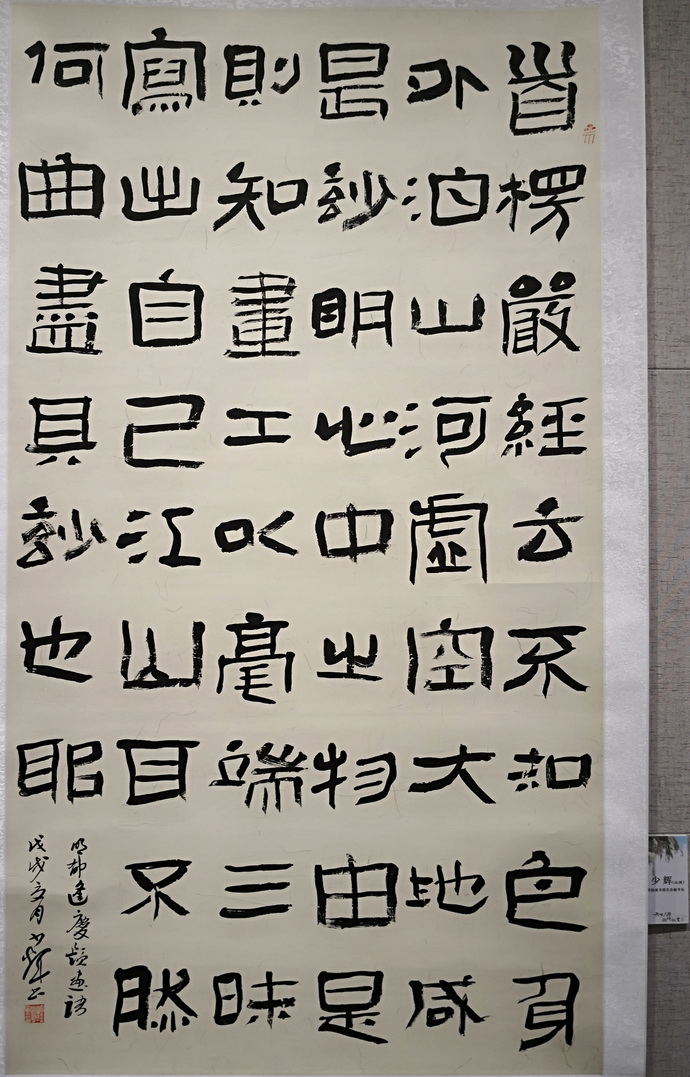 首楞嚴經云不知色身
外洎山河虛空大地咸
是玅明心中之物由是
則知畫工以毫端三昧
寫出自己江山耳不然
何曲盡其玅也耶
明郁逢慶題畫語
戊戌月少輝書
少辉